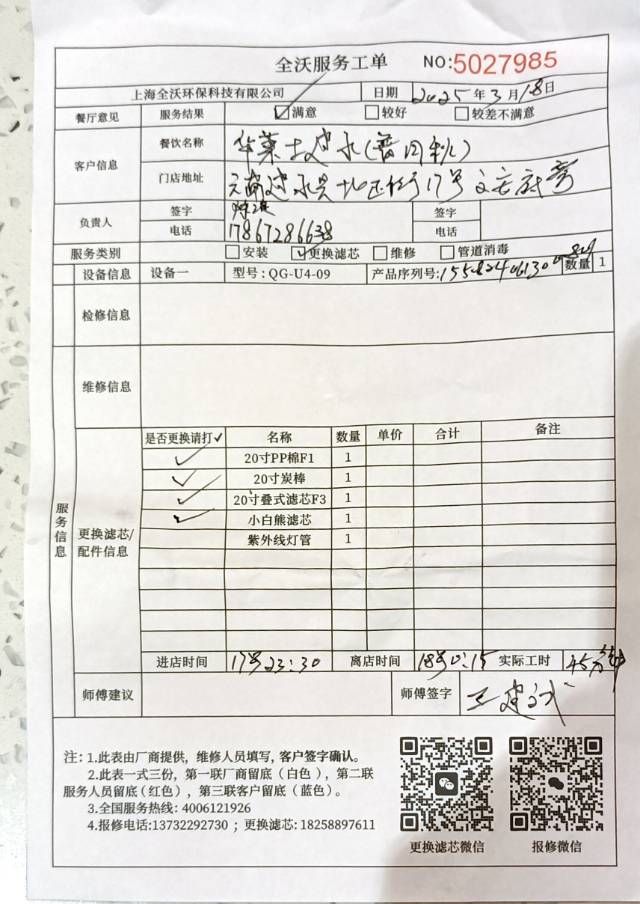 全沃服务工单 NO:5027985
上海全沃环保科技有限公司 日期 2025年3月18日
餐厅意见 服务结果 ☑满意 ☐较好 ☐较差不满意
客户信息 餐饮名称 华莱士建水
门店地址 云南建水县 17号
负责人 签字 签字
电话 17867286638 电话
服务类别 ☐安装 ☑更换滤芯 ☐维修 ☐管道消毒
设备信息 设备一 型号:QG-U4-09 产品序列号: 数量 1
检修信息
维修信息
服务信息
更换滤芯/配件信息
是否更换请打✓ 名称 数量 单价 合计 备注
✓ 20寸PP棉F1 1
✓ 20寸炭棒 1
✓ 20寸叠式滤芯F3 1
✓ 小白熊滤芯 1
紫外线灯管 1
进店时间 17号23:30 离店时间 18号0:15 实际工时 45分钟
师傅建议 师傅签字
注:1.此表由厂商提供,维修人员填写,客户签字确认。
2.此表一式三份,第一联厂商留底(白色),第二联
服务人员留底(红色),第三联客户留底(蓝色)。
3.全国服务热线:4006121926
4.报修电话:13732292730;更换滤芯:18258897611
更换滤芯微信 报修微信